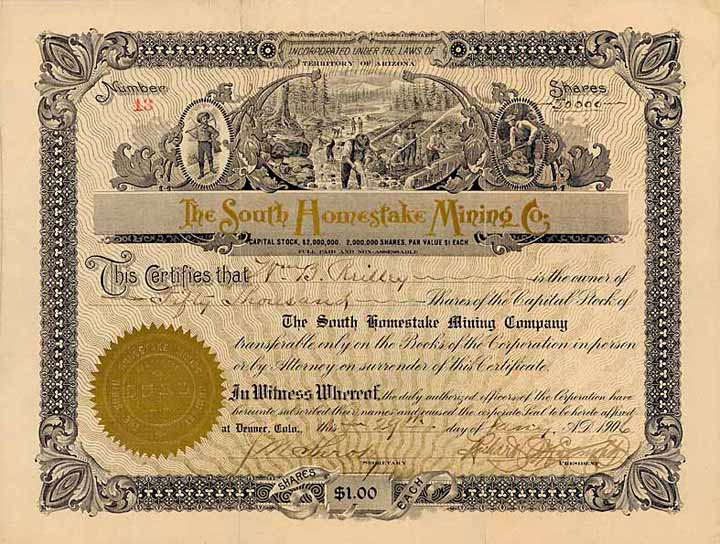 INCORPORATED UNDER THE LAWS OF
TERRITORY OF ARIZONA
Number
13
Shares
50000
The South Homestake Mining Co.
CAPITAL STOCK, $2,000,000. 2,000,000 SHARES, PAR VALUE $1 EACH
FULL PAID AND NON-ASSESSABLE
This Certifies that Wm B. is the owner of
Fifty Thousand Shares of the Capital Stock of
The South Homestake Mining Company
transferable only on the Books of the Corporation in person
or by Attorney on surrender of this Certificate.
In Witness Whereof, the duly authorized officers of the Corporation have
hereunto subscribed their names and caused the corporate Seal to be hereto affixed
at Denver, Colo., this 29th day of A.D. 1906
SECRETARY
PRESIDENT
SHARES
$1.00
EACH